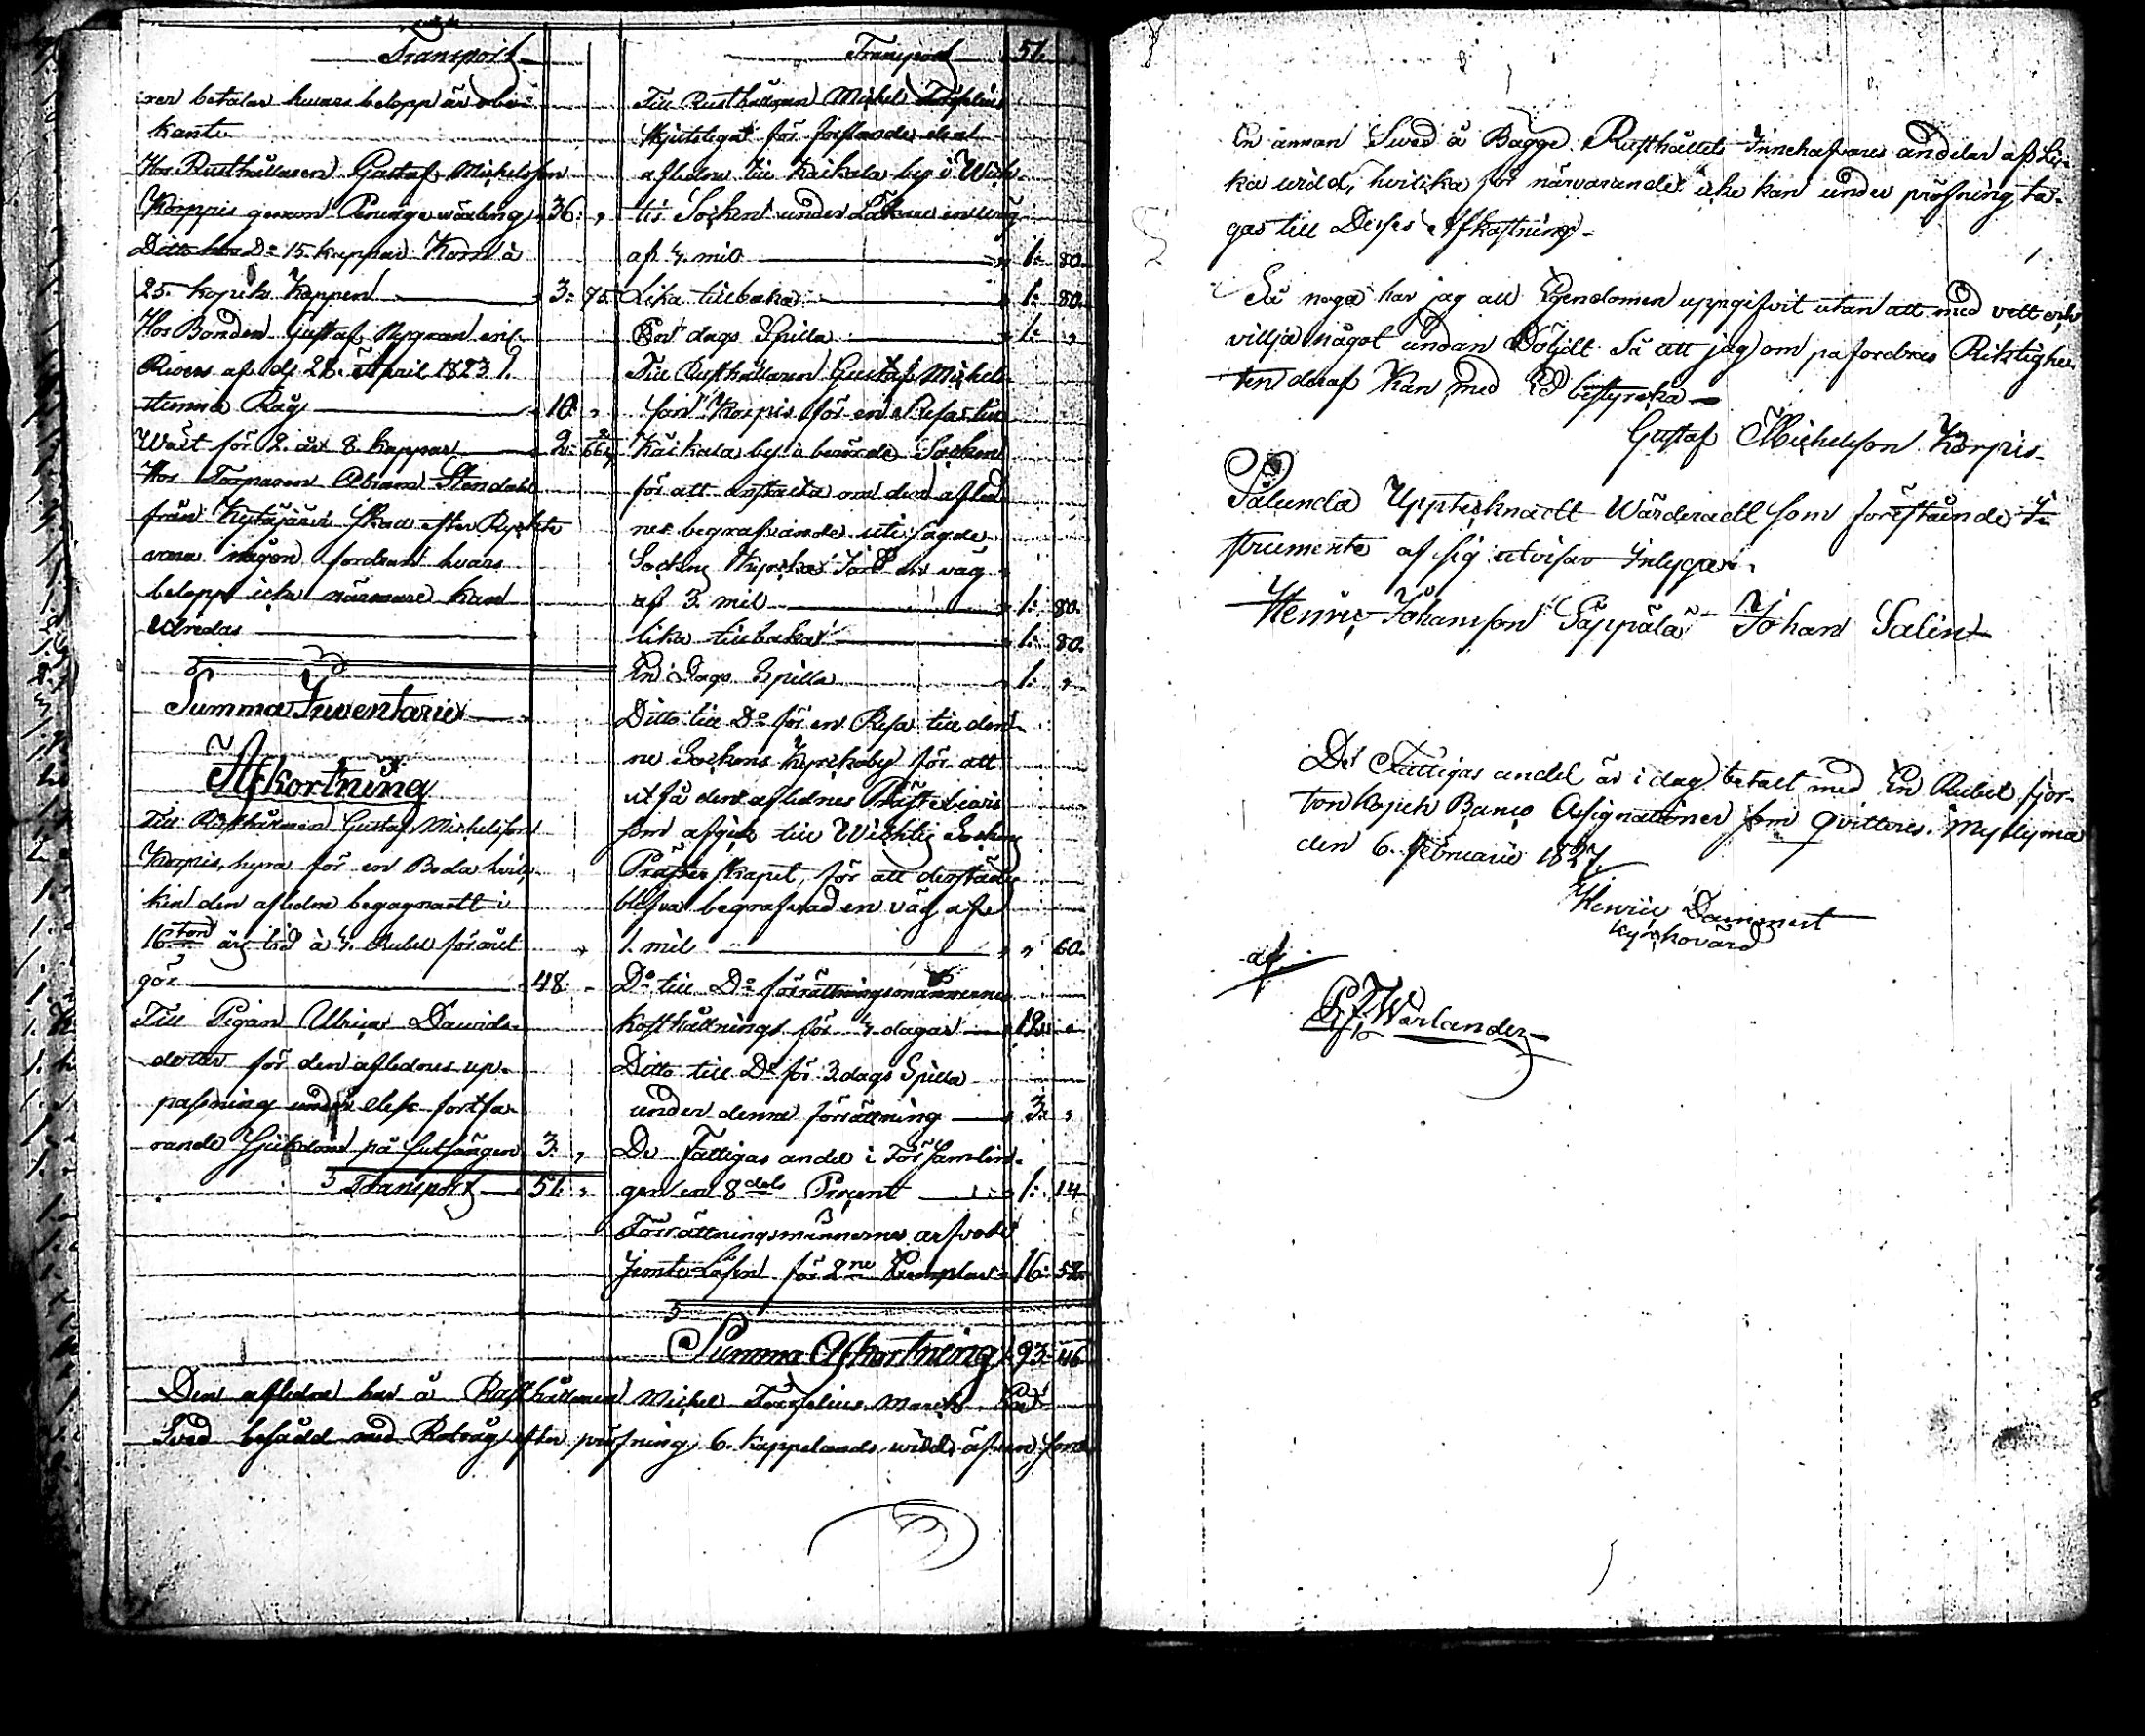 Transport
xer betalas hvars belopp är obe-
kant
Hos Rusthållaren Gustaf Michelsson
Korppis genom Penninge wäxling 36: "
Ditto hos Do 15 kappar Korn à
25. kopek Kappen 3: 75.
Hos Bonden Gustaf Nygran enl.
Revers af d. 22. April 1823 1.
tunna Råg 10: "
Wäxt för 2. år 8. kappar 2: 66
Hos Torparen Abram Stendahl
från Kytäjärvi skall efter Ryckte
vara någon fordran hvars
belopp icke närmare kan
utredas
Summa Inventarii
Afkortning
Till Rusthållaren Gustaf Michelsson
Korpis, hyra för en Boda hvil-
ken den aflidne begagnadt i
16ton års tid à 3. Rubel för året
gör 48. "
Till Pigan Ulrica Davids-
dotter för den aflidnes up-
passning under dess fortfa-
rande Sjukdom på Sutsängen 3. "
Transport 51. "
Transport 51.
Till Rusthållaren Michel Forselius
skjutslega för förstånder den
aflidne till Kaikala by i Wich-
tis Socken under en väg
af 3. mil 1: 80.
Lika tillbaka 1: 80.
En dags Spilla 1: "
Till Rusthållaren Gustaf Michels-
son Korpis för en Resa till
Kaikala by i berörde Socken
för att anstalta om den aflid-
nes begrafvande uti sagde
Sockens Kyrcko Jord en väg
af 3 mil 1: 80.
lika tillbaka 1: 80.
En Dags Spilla 1: "
Ditto till Do för en Resa till den-
ne Sockens Kyrckoby för att
utfå den aflidnes Prästebevis
som afgick till Wichtis Sockens
Prästerskapet, för att derstädes
blifva begrafvad en väg af
1. mil " 60.
Do till Do förrättningsmännernes
kosthållning för 3 dagar 12: "
Ditto till Do för 3 dags Spilla
under denna förrättning 3: "
De Fattigas andel i Församlin-
gen en 8dels Procent 1: 14
Förrättningsmännernes arfvode
jemte Lösen för 2ne Exemplar 16: 52
Summa Afkortning 93: 46
Den aflidne har å Rusthållaren Michel Forselius Mark En
Sved besådd med Rotråg efter pröfning 6. kappelands widd, äfven som
En annan Sved å Bagge Rusthållets Innehafvares andelar af Li-
ka widd, hvilka för närvarande icke kan under pröfning ta-
gas till Desses Afkastning.
Så noga har jag all Egendomen uppgifvit utan att med vett och
villja något undan Döljdt Så att jag om påfordras Riktighe-
ten deraf Kan med Ed bestyrcka
Gustaf Michelsson Korpis
Sålunda Upptecknadt Wärderadt som förestående In-
strumente af sig utvisar Intyga:
Henric Johansson Säppälä Johan Salin
De Fattigas andel är i dag betalt med En Rubel fjor-
ton kopek Banco Assignationer som qvitteres. Myllyma
den 6. Februarii 1827
Henric Dammert
kyrckovärd
af
Warlander